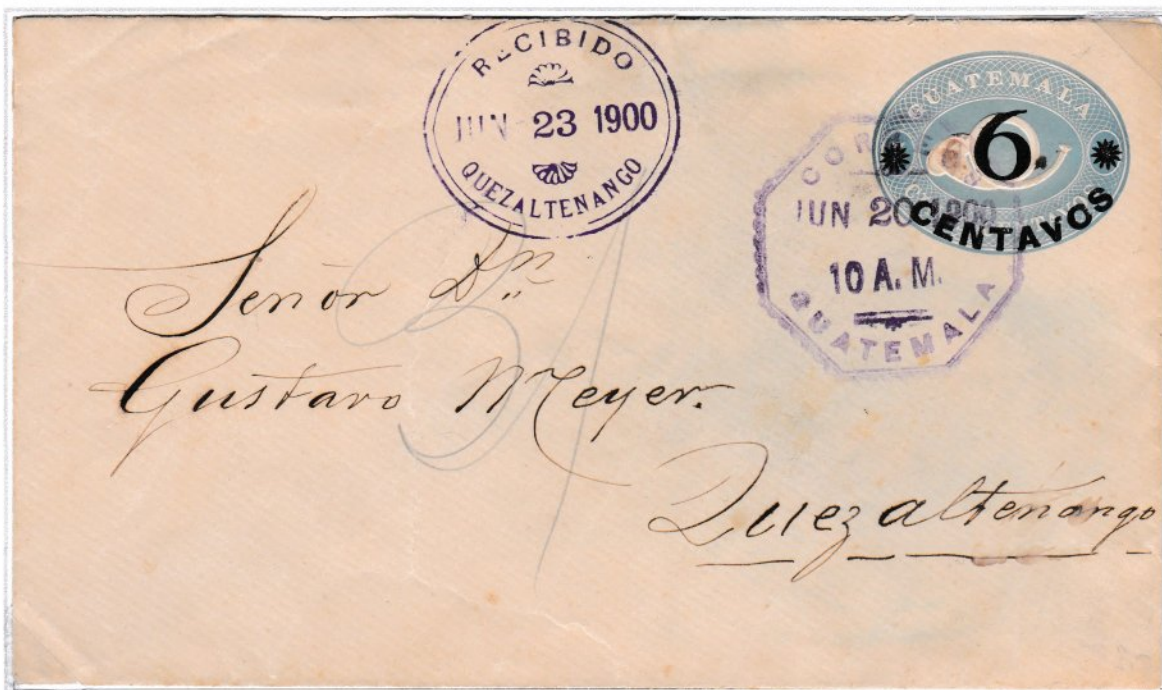 RECIBIDO
JUN 23 1900
QUEZALTENANGO
GUATEMALA
6.
CENTAVOS
JUN 20 1900
10 A. M.
GUATEMALA
Señor Dn.
Gustavo Meyer.
Quezaltenango
31